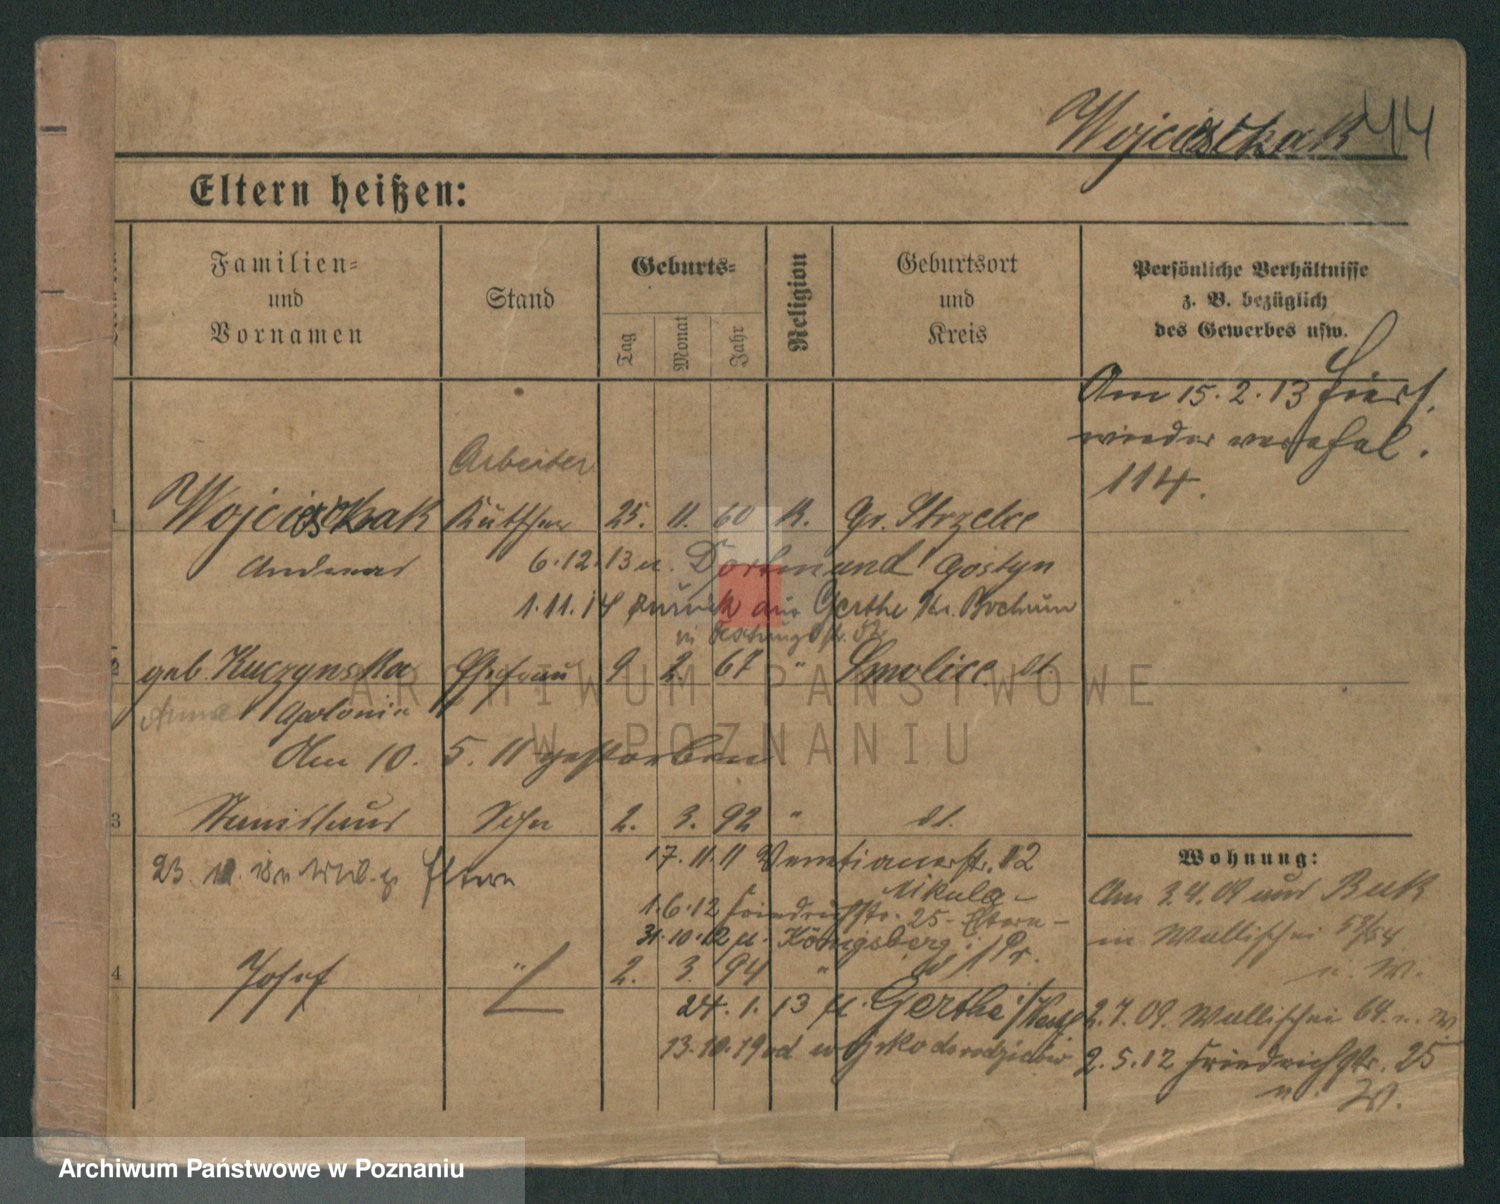 Wojcieschak 44
Eltern heißen:
Familien=
und
Vornamen
Stand
Geburts=
Tag
Monat
Jahr
Religion
Geburtsort
und
Kreis
Persönliche Verhältnisse
z. B. bezüglich
des Gewerbes usw.
Am 15. 2. 13 hier
wieder
114.
Arbeiter
1 Wojcieschak Kutscher 25. 11. 60 K. Gr. Strzelce
Andreas 6. 12. 13 n. Dortmund Gostyn
1. 11. 14 zurück aus Gerthe Kr. Bochum
2 geb. Kuczynska Ehefrau 9 2. 67 " Smolice dt
Anna Apolonia
Am 10. 5. 11 gestorben
3 Stanislaus Sohn 2. 3. 92 " dt.
17. 11. 11 Venetianerstr. 12
23. Eltern
1. 6. 12 Friedrichstr. 25 Eltern
31. 10. 12 n. Königsberg i/Pr.
4 Josef " 2. 3. 94 "
24. 1. 13 n. Gerthe i/Westf
13. 10. 19 od wojska do rodziców
Wohnung:
Am 3. 4. 09 aus Buk
in Wallischei 53/54
n. W.
2. 7. 09. Wallischei 64. n. W.
2. 5. 12 Friedrichstr. 25
n. W.
ARCHIWUM PAŃSTWOWE
W POZNANIU
Archiwum Państwowe w Poznaniu